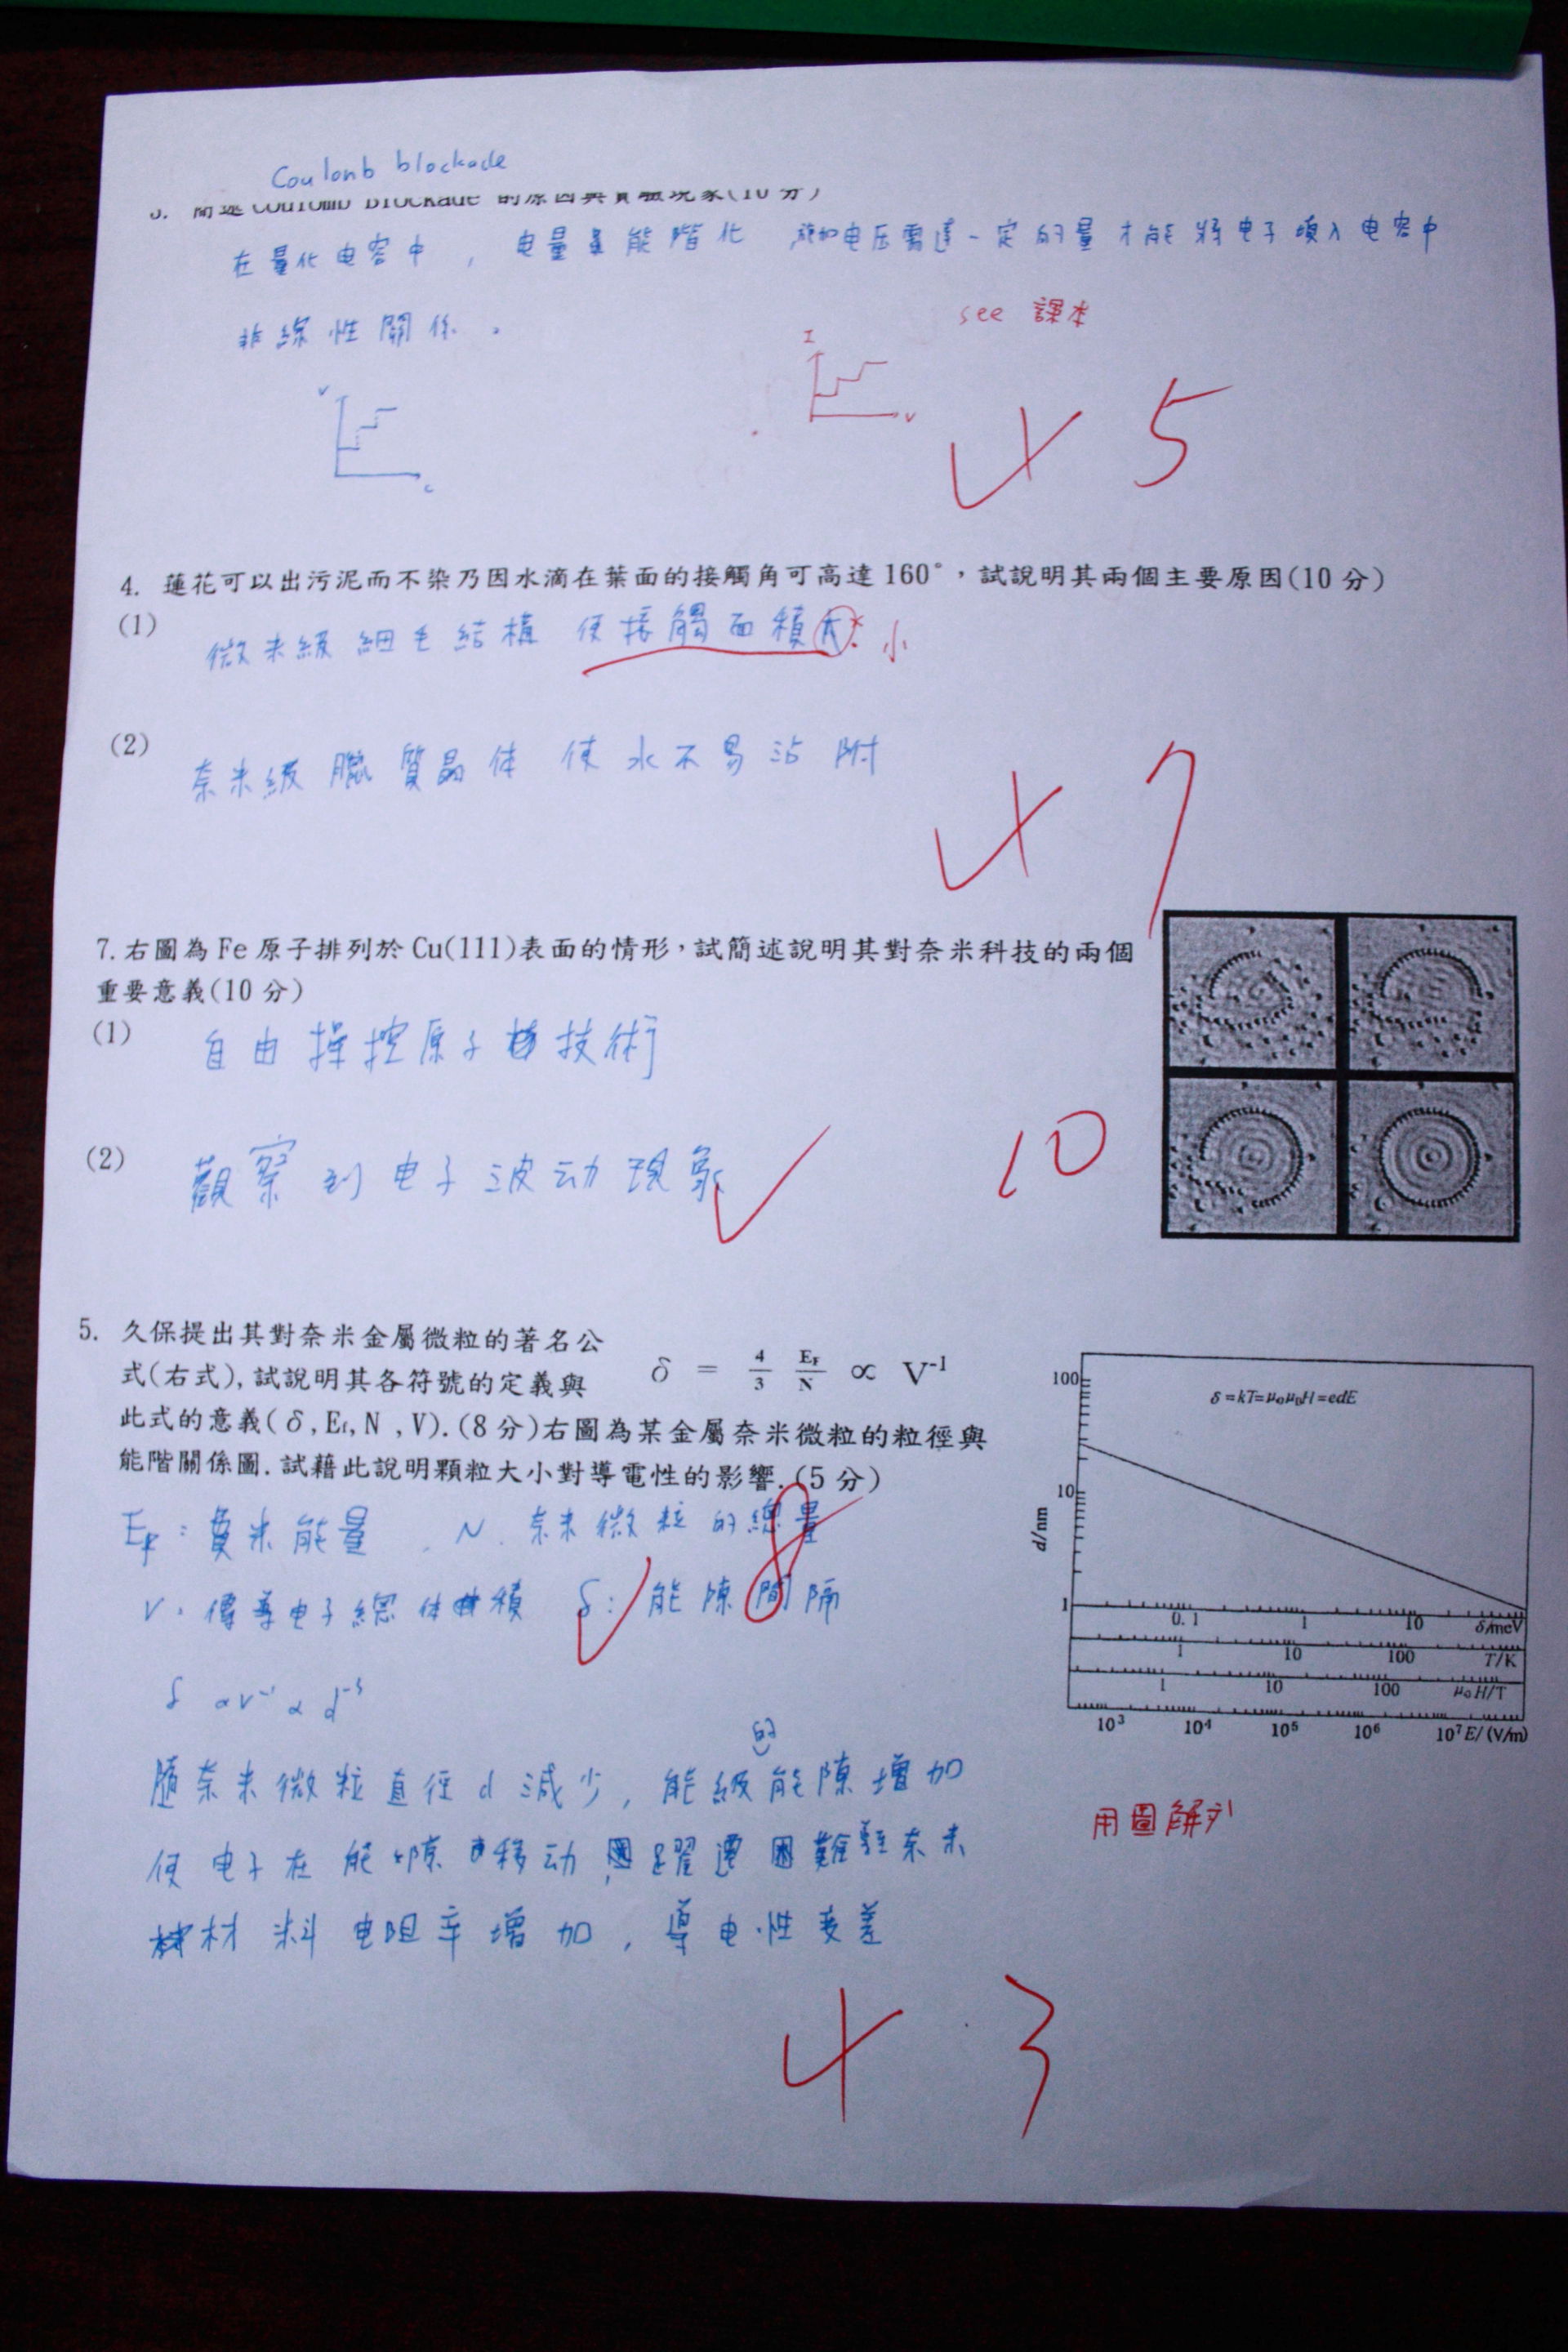 Coulonb blockade
簡述 Coulomb Blockade 的原因與實驗現象(10 分)
在量化电容中，电量量能階化 施加电压需達一定的量才能將电子填入电容中
非線性關係。
see 課本
I
V
V
C
5
4. 蓮花可以出污泥而不染乃因水滴在葉面的接觸角可高達 160°，試說明其兩個主要原因(10 分)
(1)
微米級細毛結構 使接觸面積大. 小
(2)
奈米級臘質晶体 使水不易沾附
7
7. 右圖為 Fe 原子排列於 Cu(111)表面的情形，試簡述說明其對奈米科技的兩個
重要意義(10 分)
(1)
自由操控原子 技術
(2)
觀察到电子波动現象
10
5. 久保提出其對奈米金屬微粒的著名公
式(右式), 試說明其各符號的定義與
此式的意義(δ, Ef, N , V). (8 分)右圖為某金屬奈米微粒的粒徑與
能階關係圖. 試藉此說明顆粒大小對導電性的影響. (5 分)
δ = 4/3 EF/N ∝ V⁻¹
EF: 費米能量 . N. 奈米微粒的總量
V. 傳導电子總体積 δ: 能隙間隔
8
δ ∝ V⁻¹ ∝ d⁻³
隨奈米微粒直徑 d 減少, 能級的能隙增加
使电子在能隙 移动, 躍遷困難 奈米
材料电阻率增加, 導电性変差
3
用圖解
100
10
1
d/nm
δ=kT=μ₀μBH=edE
0.1 1 10 δ/meV
1 10 100 T/K
1 10 100 μ₀H/T
10³ 10⁴ 10⁵ 10⁶ 10⁷ E/(V/m)